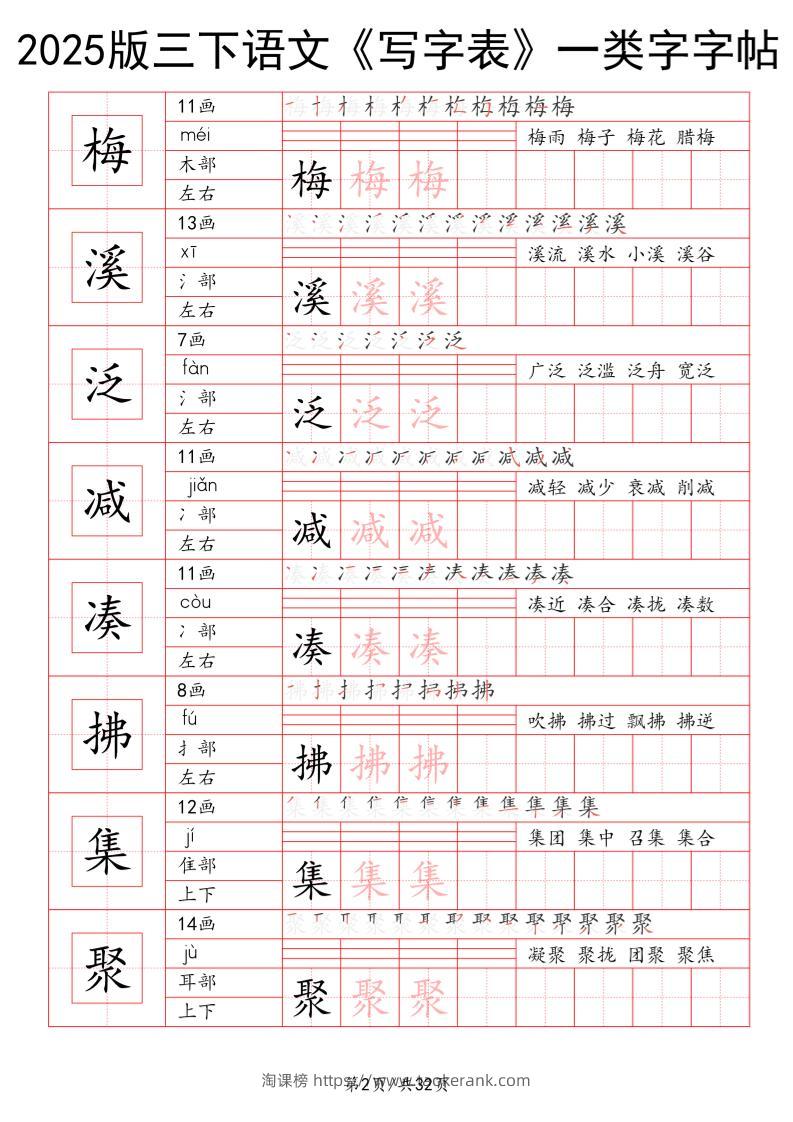 2025版三下语文《写字表》一类字字帖
梅
11画
méi
梅雨 梅子 梅花 腊梅
木部
左右
梅 梅 梅
溪
13画
xī
溪流 溪水 小溪 溪谷
氵部
左右
溪 溪 溪
泛
7画
fàn
广泛 泛滥 泛舟 宽泛
氵部
左右
泛 泛 泛
减
11画
jiǎn
减轻 减少 衰减 削减
冫部
左右
减 减 减
凑
11画
còu
凑近 凑合 凑拢 凑数
冫部
左右
凑 凑 凑
拂
8画
fú
吹拂 拂过 飘拂 拂逆
扌部
左右
拂 拂 拂
集
12画
jí
集团 集中 召集 集合
隹部
上下
集 集 集
聚
14画
jù
凝聚 聚拢 团聚 聚焦
耳部
上下
聚 聚 聚
淘课榜 https://www.taokerank.com
第2页/共32页